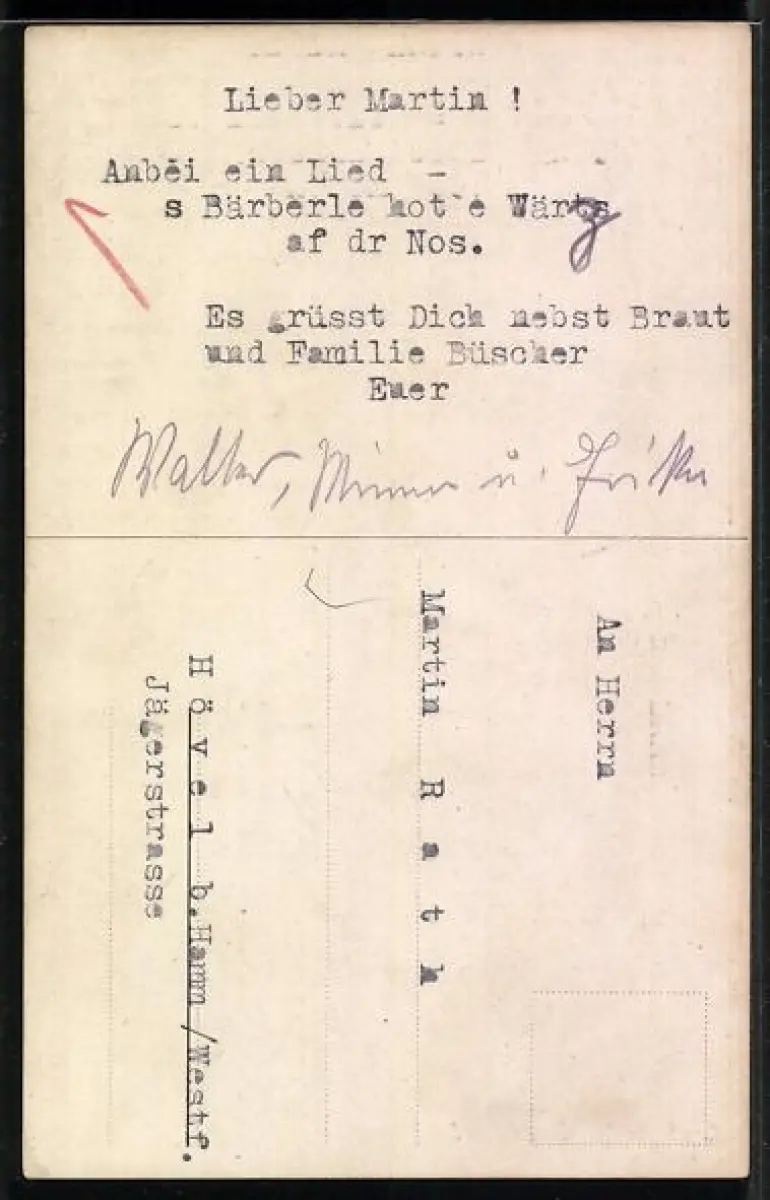 Lieber Martin !
Anbei ein Lied -
s Bärberle hot`e Wärz
af dr Nos.
Es grüsst Dich nebst Braut
und Familie Büscher
Euer
Walter, u.
An Herrn
Martin R a t h
H ö v e l b.Hamm /Westf.
Jägerstrasse